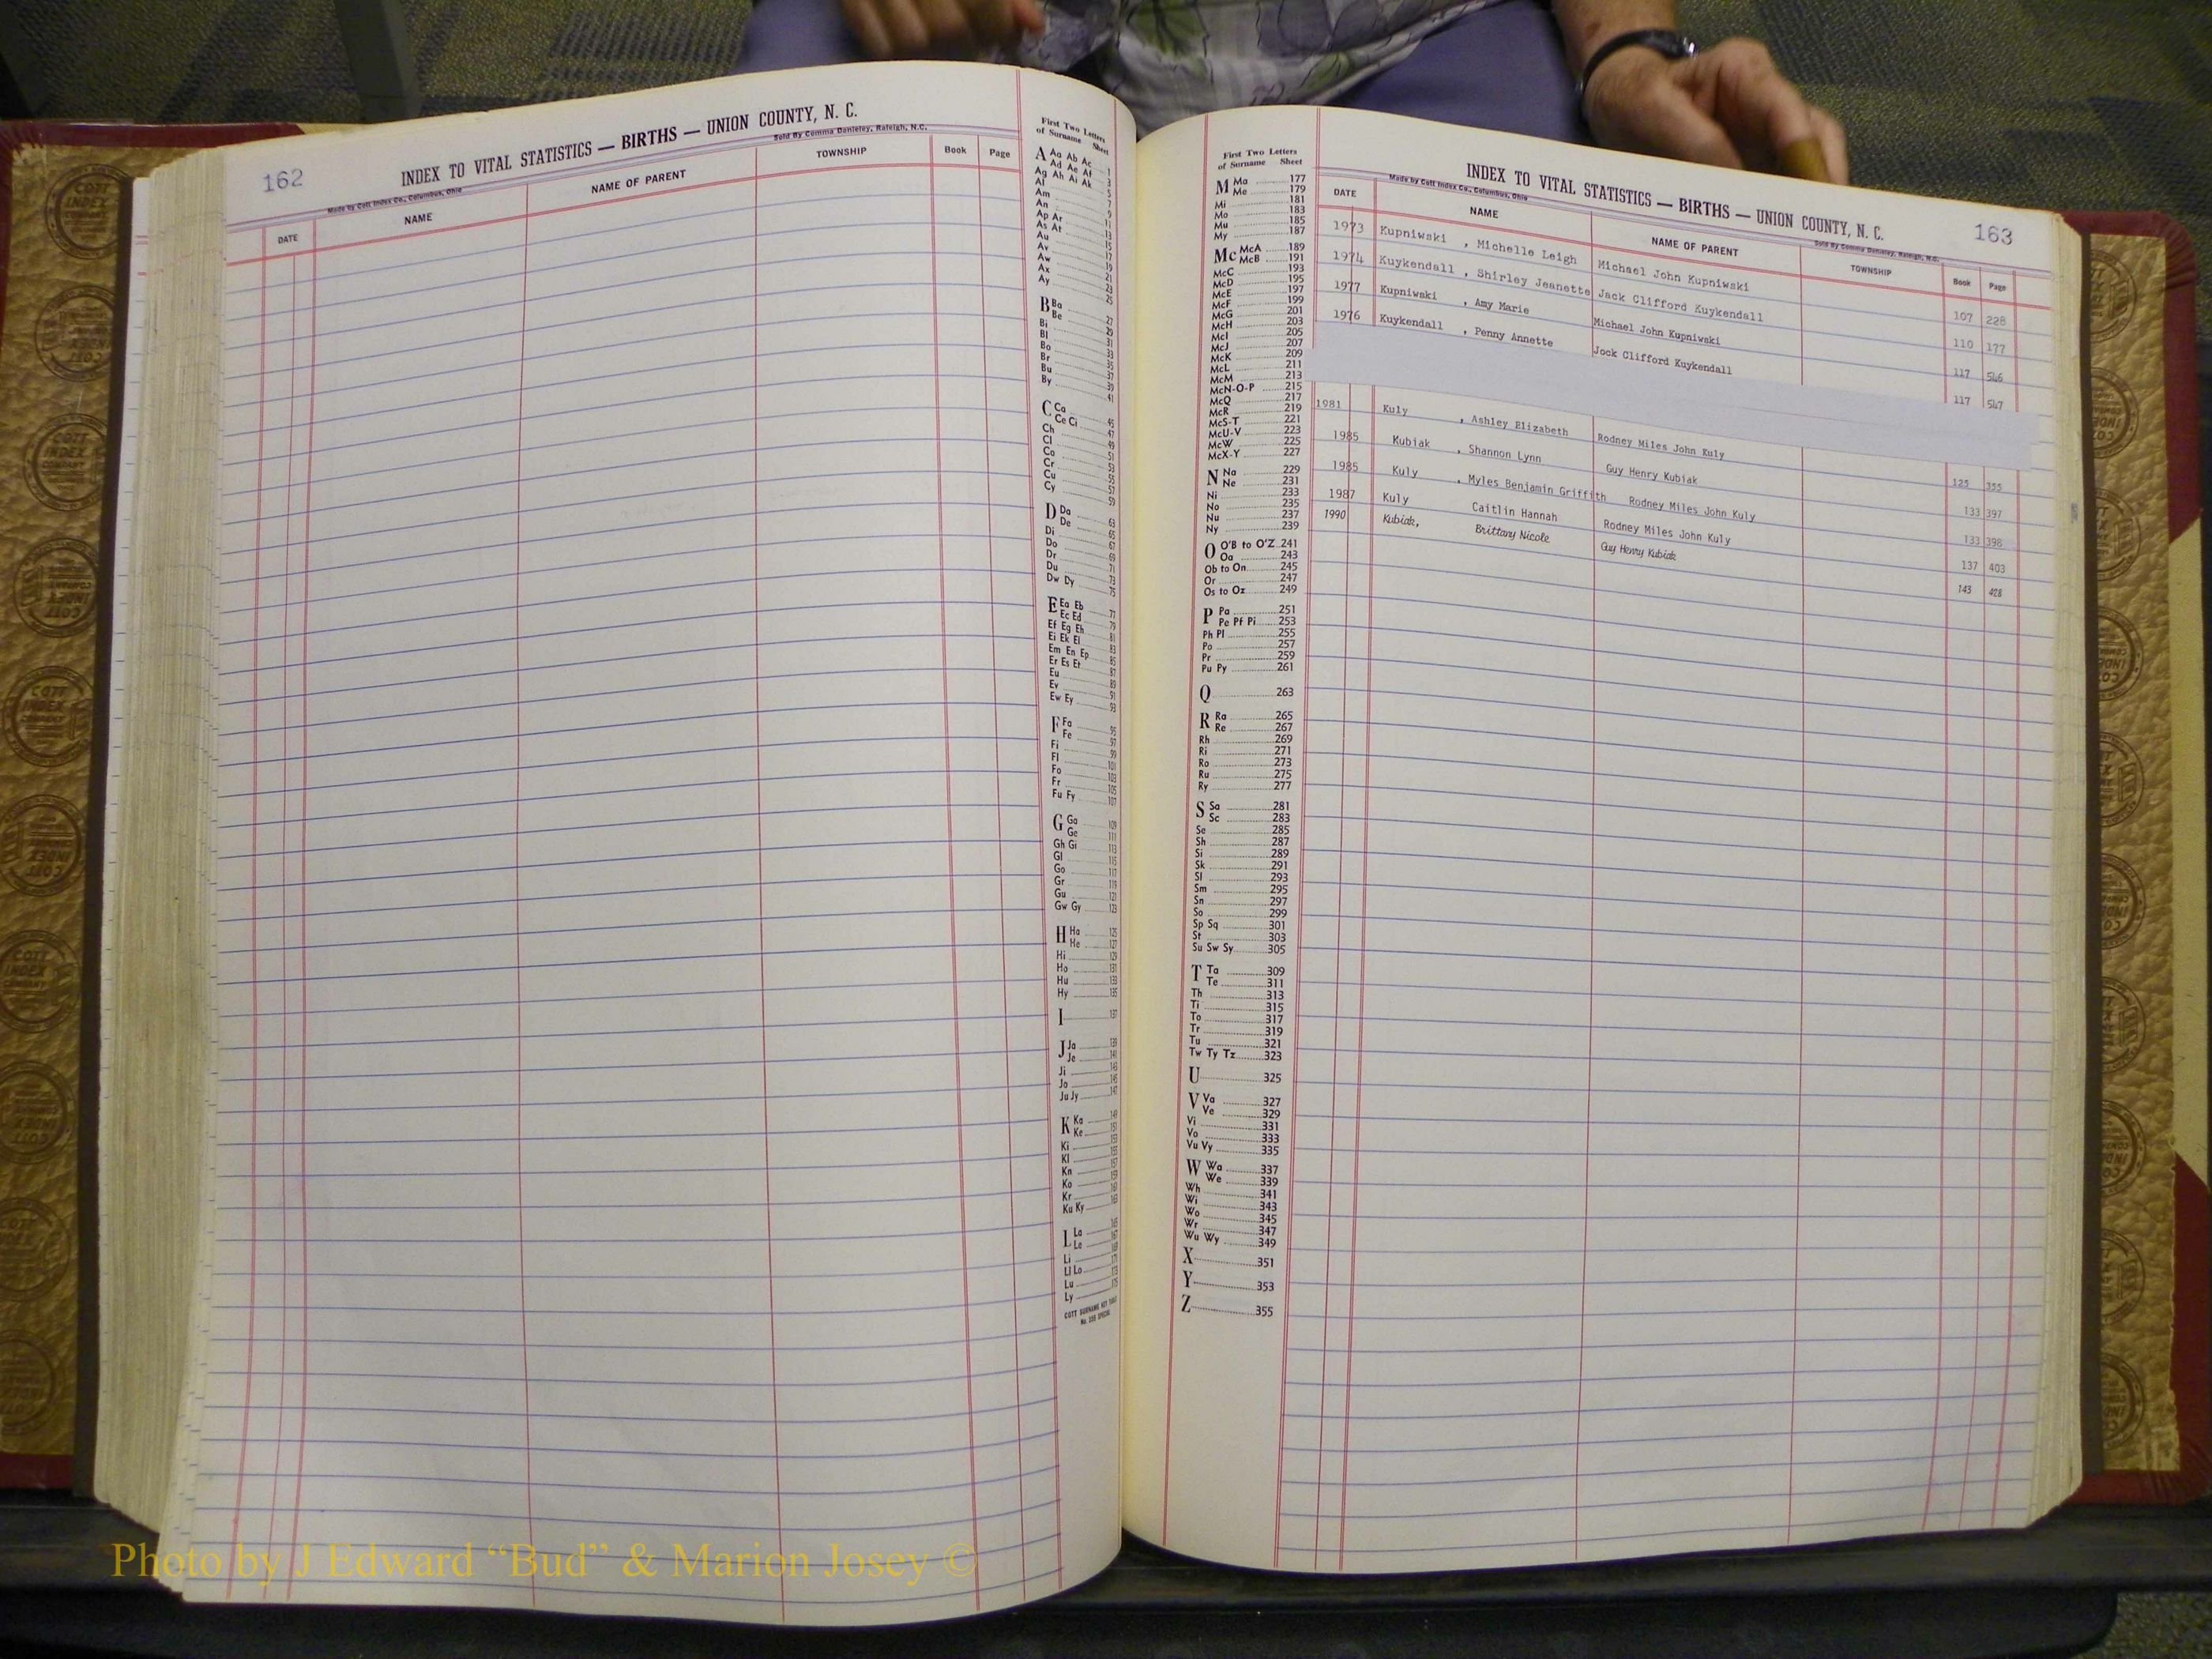 162
INDEX TO VITAL STATISTICS — BIRTHS — UNION COUNTY, N. C.
Made by Cott Index Co., Columbus, Ohio
Sold By Comma Danieley, Raleigh, N.C.
DATE NAME NAME OF PARENT TOWNSHIP Book Page
First Two Letters
of Surname Sheet
A Aa Ab Ac
Ad Ae Af 1
Ag Ah Ai Ak 3
Al 5
Am 7
An 9
Ap Ar 11
As At 13
Au 15
Av 17
Aw 19
Ax 21
Ay 23
25
B Ba 27
Be 29
Bi 31
Bl 33
Bo 35
Br 37
Bu 39
By 41
C Ca 45
Ce Ci 47
Ch 49
Cl 51
Co 53
Cr 55
Cu 57
Cy 59
D Da 63
De 65
Di 67
Do 69
Dr 71
Du 73
Dw Dy 75
E Ea Eb 77
Ec Ed 79
Ef Eg Eh 81
Ei Ek El 83
Em En Ep 85
Er Es Et 87
Eu 89
Ev 91
Ew Ey 93
F Fa 95
Fe 97
Fi 99
Fl 101
Fo 103
Fr 105
Fu Fy 107
G Ga 109
Ge 111
Gh Gi 113
Gl 115
Go 117
Gr 119
Gu 121
Gw Gy 123
H Ha 125
He 127
Hi 129
Ho 131
Hu 133
Hy 135
I 137
J Ja 139
Je 141
Ji 143
Jo 145
Ju Jy 147
K Ka 149
Ke 151
Ki 153
Kl 155
Kn 157
Ko 159
Kr 161
Ku Ky 163
L La 165
Le 167
Li 169
Ll Lo 171
Lu 173
Ly 175
COTT SURNAME KEY TABLE
No. SPECIAL
First Two Letters
of Surname Sheet
M Ma 177
Me 179
Mi 181
Mo 183
Mu 185
My 187
Mc McA 189
McB 191
McC 193
McD 195
McE 197
McF 199
McG 201
McH 203
McI 205
McJ 207
McK 209
McL 211
McM 213
McN-O-P 215
McQ 217
McR 219
McS-T 221
McU-V 223
McW 225
McX-Y 227
N Na 229
Ne 231
Ni 233
No 235
Nu 237
Ny 239
O O'B to O'Z 241
Oa 243
Ob to On 245
Or 247
Os to Oz 249
P Pa 251
Pe Pf Pi 253
Ph Pl 255
Po 257
Pr 259
Pu Py 261
Q 263
R Ra 265
Re 267
Rh 269
Ri 271
Ro 273
Ru 275
Ry 277
S Sa 281
Sc 283
Se 285
Sh 287
Si 289
Sk 291
Sl 293
Sm 295
Sn 297
So 299
Sp Sq 301
St 303
Su Sw Sy 305
T Ta 309
Te 311
Th 313
Ti 315
To 317
Tr 319
Tu 321
Tw Ty Tz 323
U 325
V Va 327
Ve 329
Vi 331
Vo 333
Vu Vy 335
W Wa 337
We 339
Wh 341
Wi 343
Wo 345
Wr 347
Wu Wy 349
X 351
Y 353
Z 355
INDEX TO VITAL STATISTICS — BIRTHS — UNION COUNTY, N. C.
163
Made by Cott Index Co., Columbus, Ohio
Sold By Comma Danieley, Raleigh, N.C.
DATE NAME NAME OF PARENT TOWNSHIP Book Page
1973 Kupniwski , Michelle Leigh Michael John Kupniwski 107 228
1974 Kuykendall , Shirley Jeanette Jack Clifford Kuykendall 110 177
1977 Kupniwski , Amy Marie Michael John Kupniwski 117 546
1976 Kuykendall , Penny Annette Jock Clifford Kuykendall 117 547
1981 Kuly , Ashley Elizabeth Rodney Miles John Kuly 125 355
1985 Kubiak , Shannon Lynn Guy Henry Kubiak 133 397
1985 Kuly , Myles Benjamin Griffith Rodney Miles John Kuly 133 398
1987 Kuly Caitlin Hannah Rodney Miles John Kuly 137 403
1990 Kubiak, Brittany Nicole Guy Henry Kubiak 143 428
Photo by J Edward “Bud” & Marion Josey ©